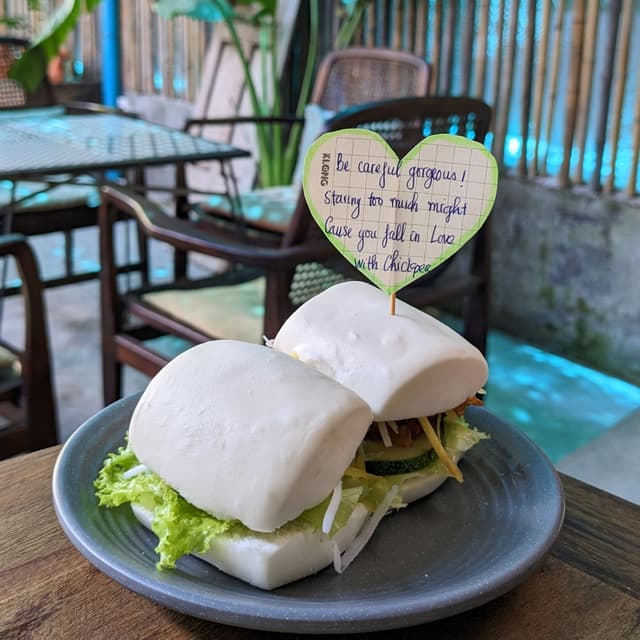 KLONG
Be careful gorgeous!
staring too much might
Cause you fall in Love
with Chickpea